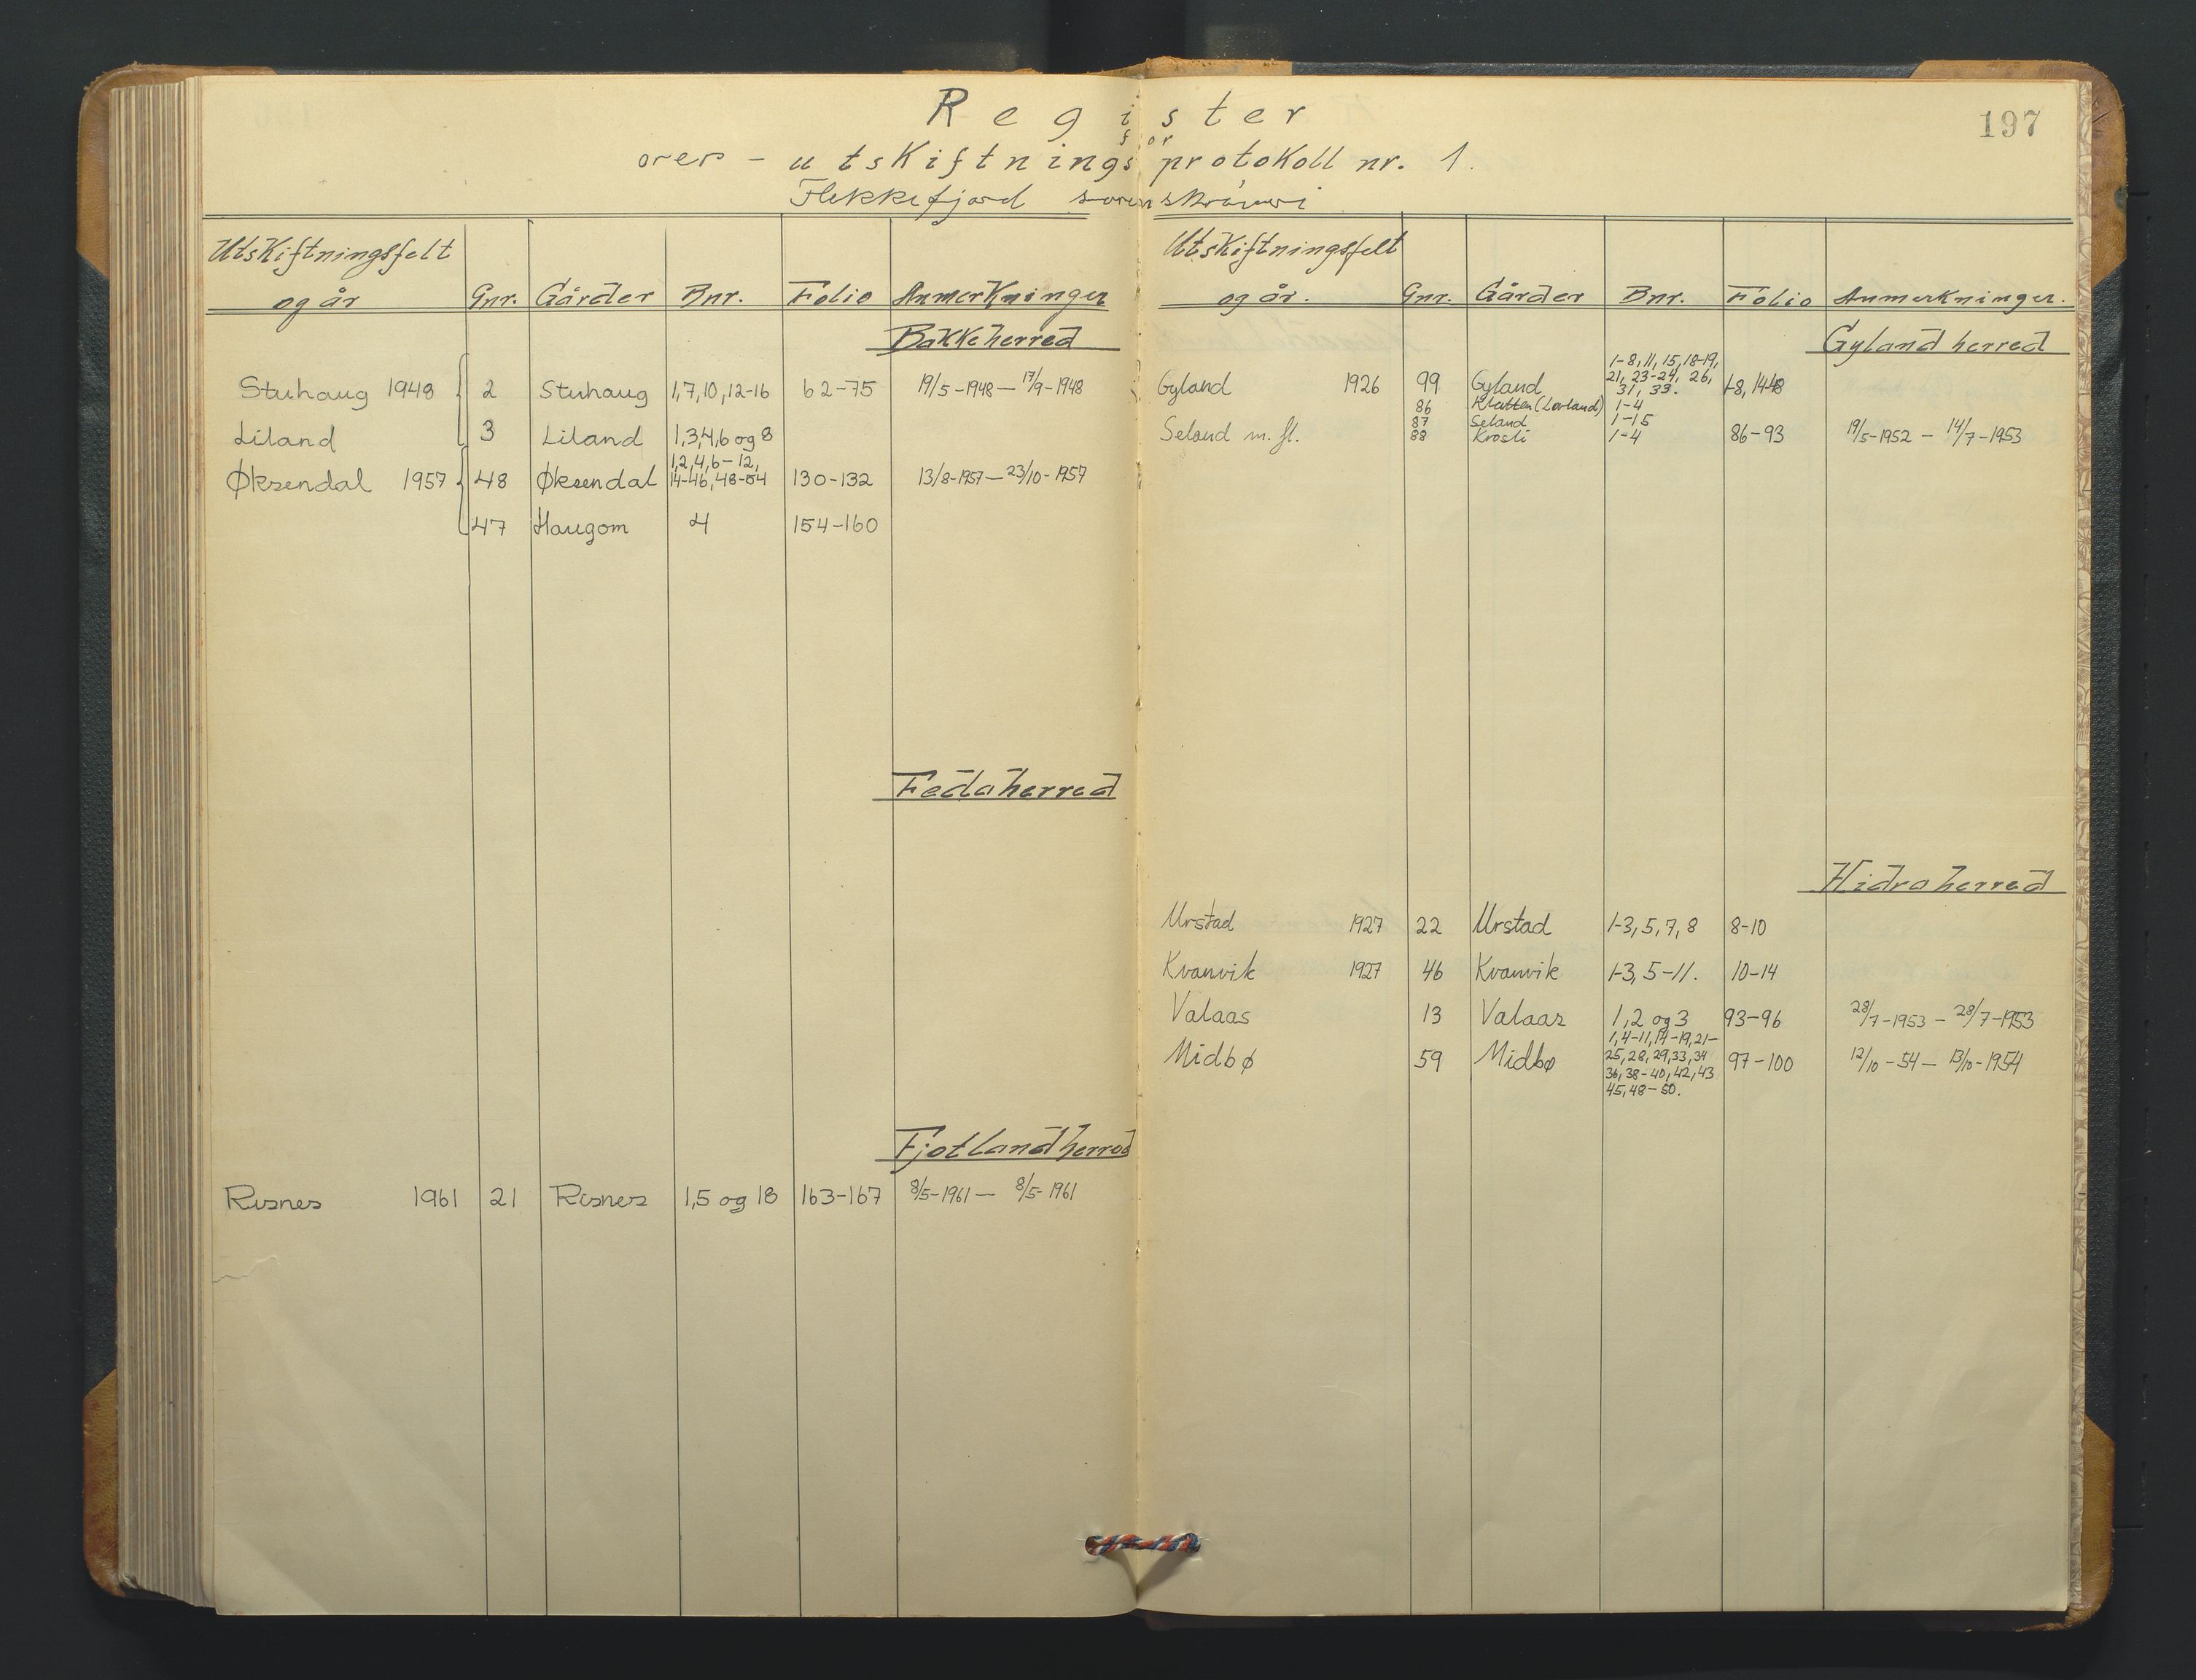 197
Register
for
over - utskiftningsprotokoll nr. 1.
Flekkefjord sorenskriveri
Utskiftningsfelt og år Gnr. Gårder Bnr. Folio Anmerkninger
Bakke herred
Stuhaug 1948 2 Stuhaug 1,7,10,12-16 62-75 19/5-1948 — 17/9-1948
Liland 3 Liland 1,3,4,6 og 8
Øksendal 1957 48 Øksendal 1,2,4,6-12, 14-46, 48-54 130-132 13/8-1957 — 23/10-1957
47 Haugom 4 154-160
Feda herred
Fjotland herred
Risnes 1961 21 Risnes 1,5 og 18 163-167 8/5-1961 — 8/5-1961
Utskiftningsfelt og år. Gnr. Gårder Bnr. Folio Anmerkninger.
Gyland herred
Gyland 1926 99 Gyland 1-8, 11, 15, 18-19, 21, 23-24, 26, 31, 33. 1-8, 14-48
86 Klatten (Lovland) 1-4
87 Seland 1-15
Seland m. fl. 88 Krosli 1-4 86-93 19/5-1952 — 14/7-1953
Hidra herred
Urstad 1927 22 Urstad 1-3, 5, 7, 8 8-10
Kvanvik 1927 46 Kvanvik 1-3, 5-11. 10-14
Valaas 13 Valaas 1, 2 og 3 93-96 28/7-1953 — 28/7-1953
Midbø 59 Midbø 1,4-11,14-19,21-25,28,29,33,34 36,38-40,42,43 45,48-50. 97-100 12/10-54 — 13/10-1954